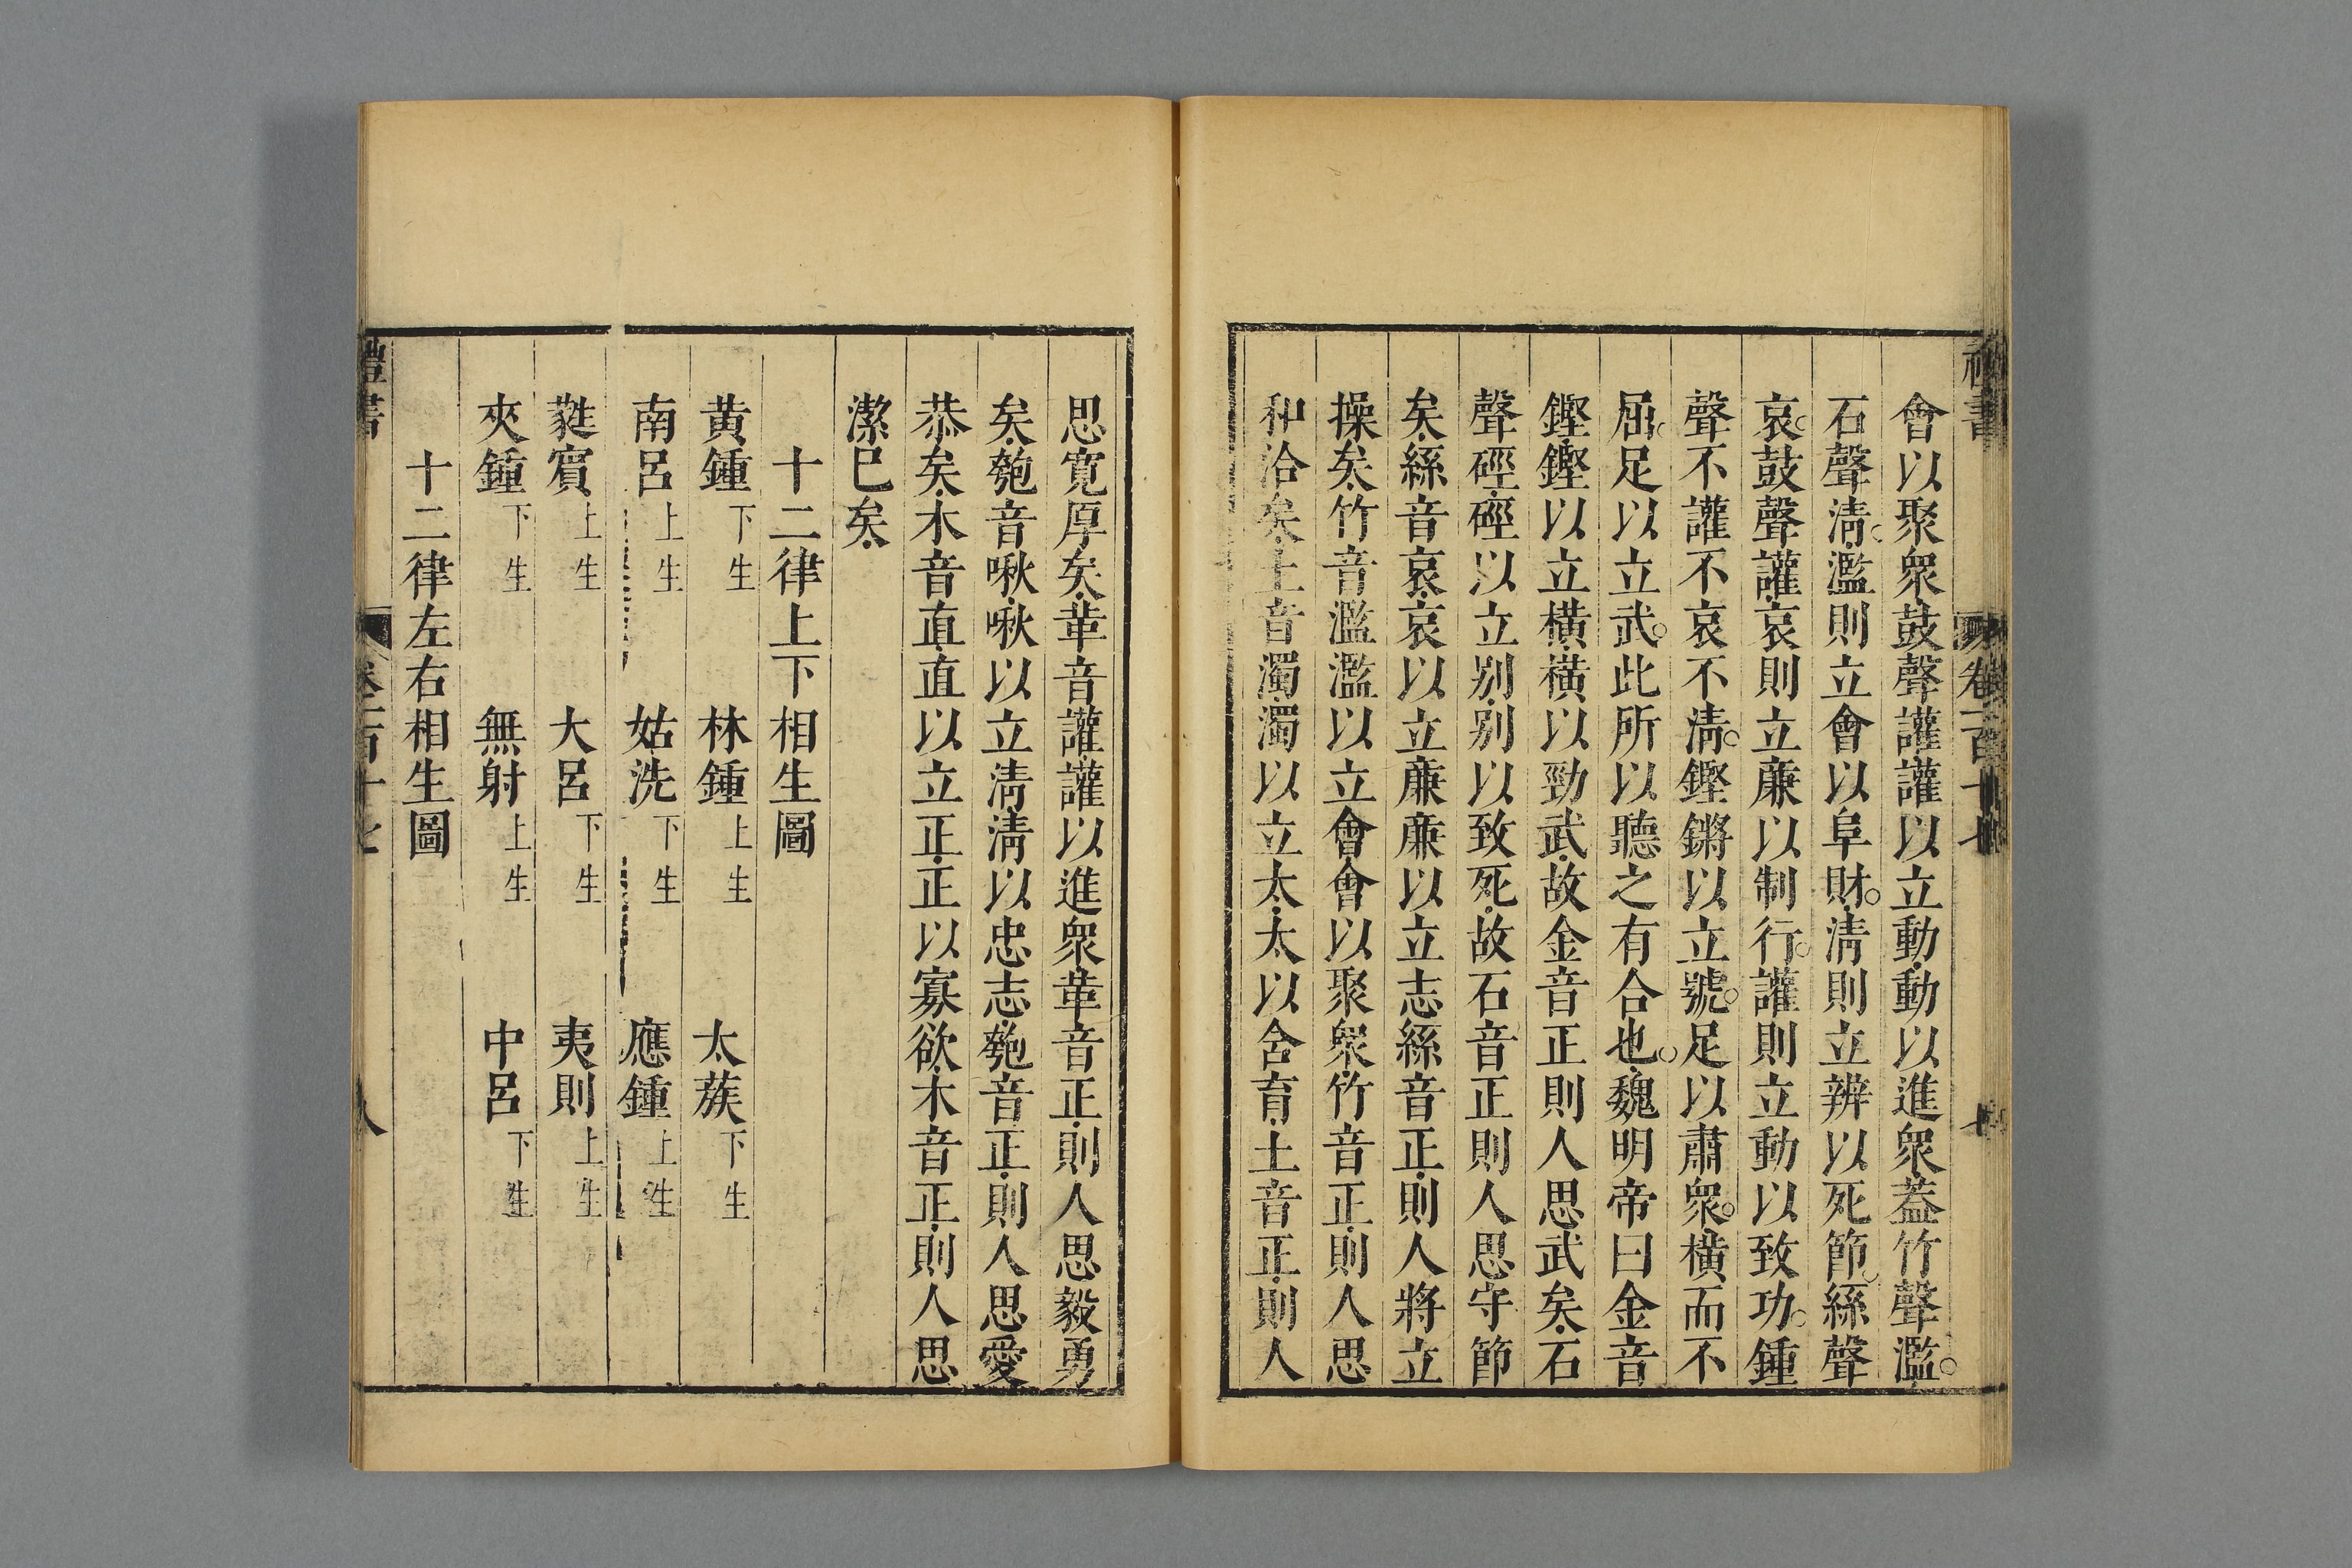 會以聚衆鼓聲讙讙以立動動以進衆葢竹聲濫
石聲淸濫則立會以阜財淸則立辨以死節絲聲
哀鼓聲讙哀則立亷以制行讙則立動以致功鍾
聲不讙不哀不淸鏗鏘以立號足以肅衆橫而不
屈足以立武此所以聽之有合也魏明帝曰金音
鏗鏗以立橫橫以勁武故金音正則人思武矣石
聲硜硜以立别别以致死故石音正則人思守節
矣絲音哀哀以立亷亷以立志絲音正則人將立
操矣竹音濫濫以立會會以聚衆竹音正則人思
和洽矣土音濁濁以立太太以含育土音正則人
思寛厚矣革音讙讙以進衆革音正則人思毅勇
矣匏音啾啾以立淸淸以忠志匏音正則人思愛
恭矣木音直直以立正正以寡欲木音正則人思
潔巳矣
十二律上下相生圖
黄鍾下生 林鍾上生 太蔟下生
南呂上生 姑洗下生 應鍾上生
蕤賓上生 大呂下生 夷則上生
夾鍾下生 無射上生 中呂下生
十二律左右相生圖
禮書 卷一百十七 八